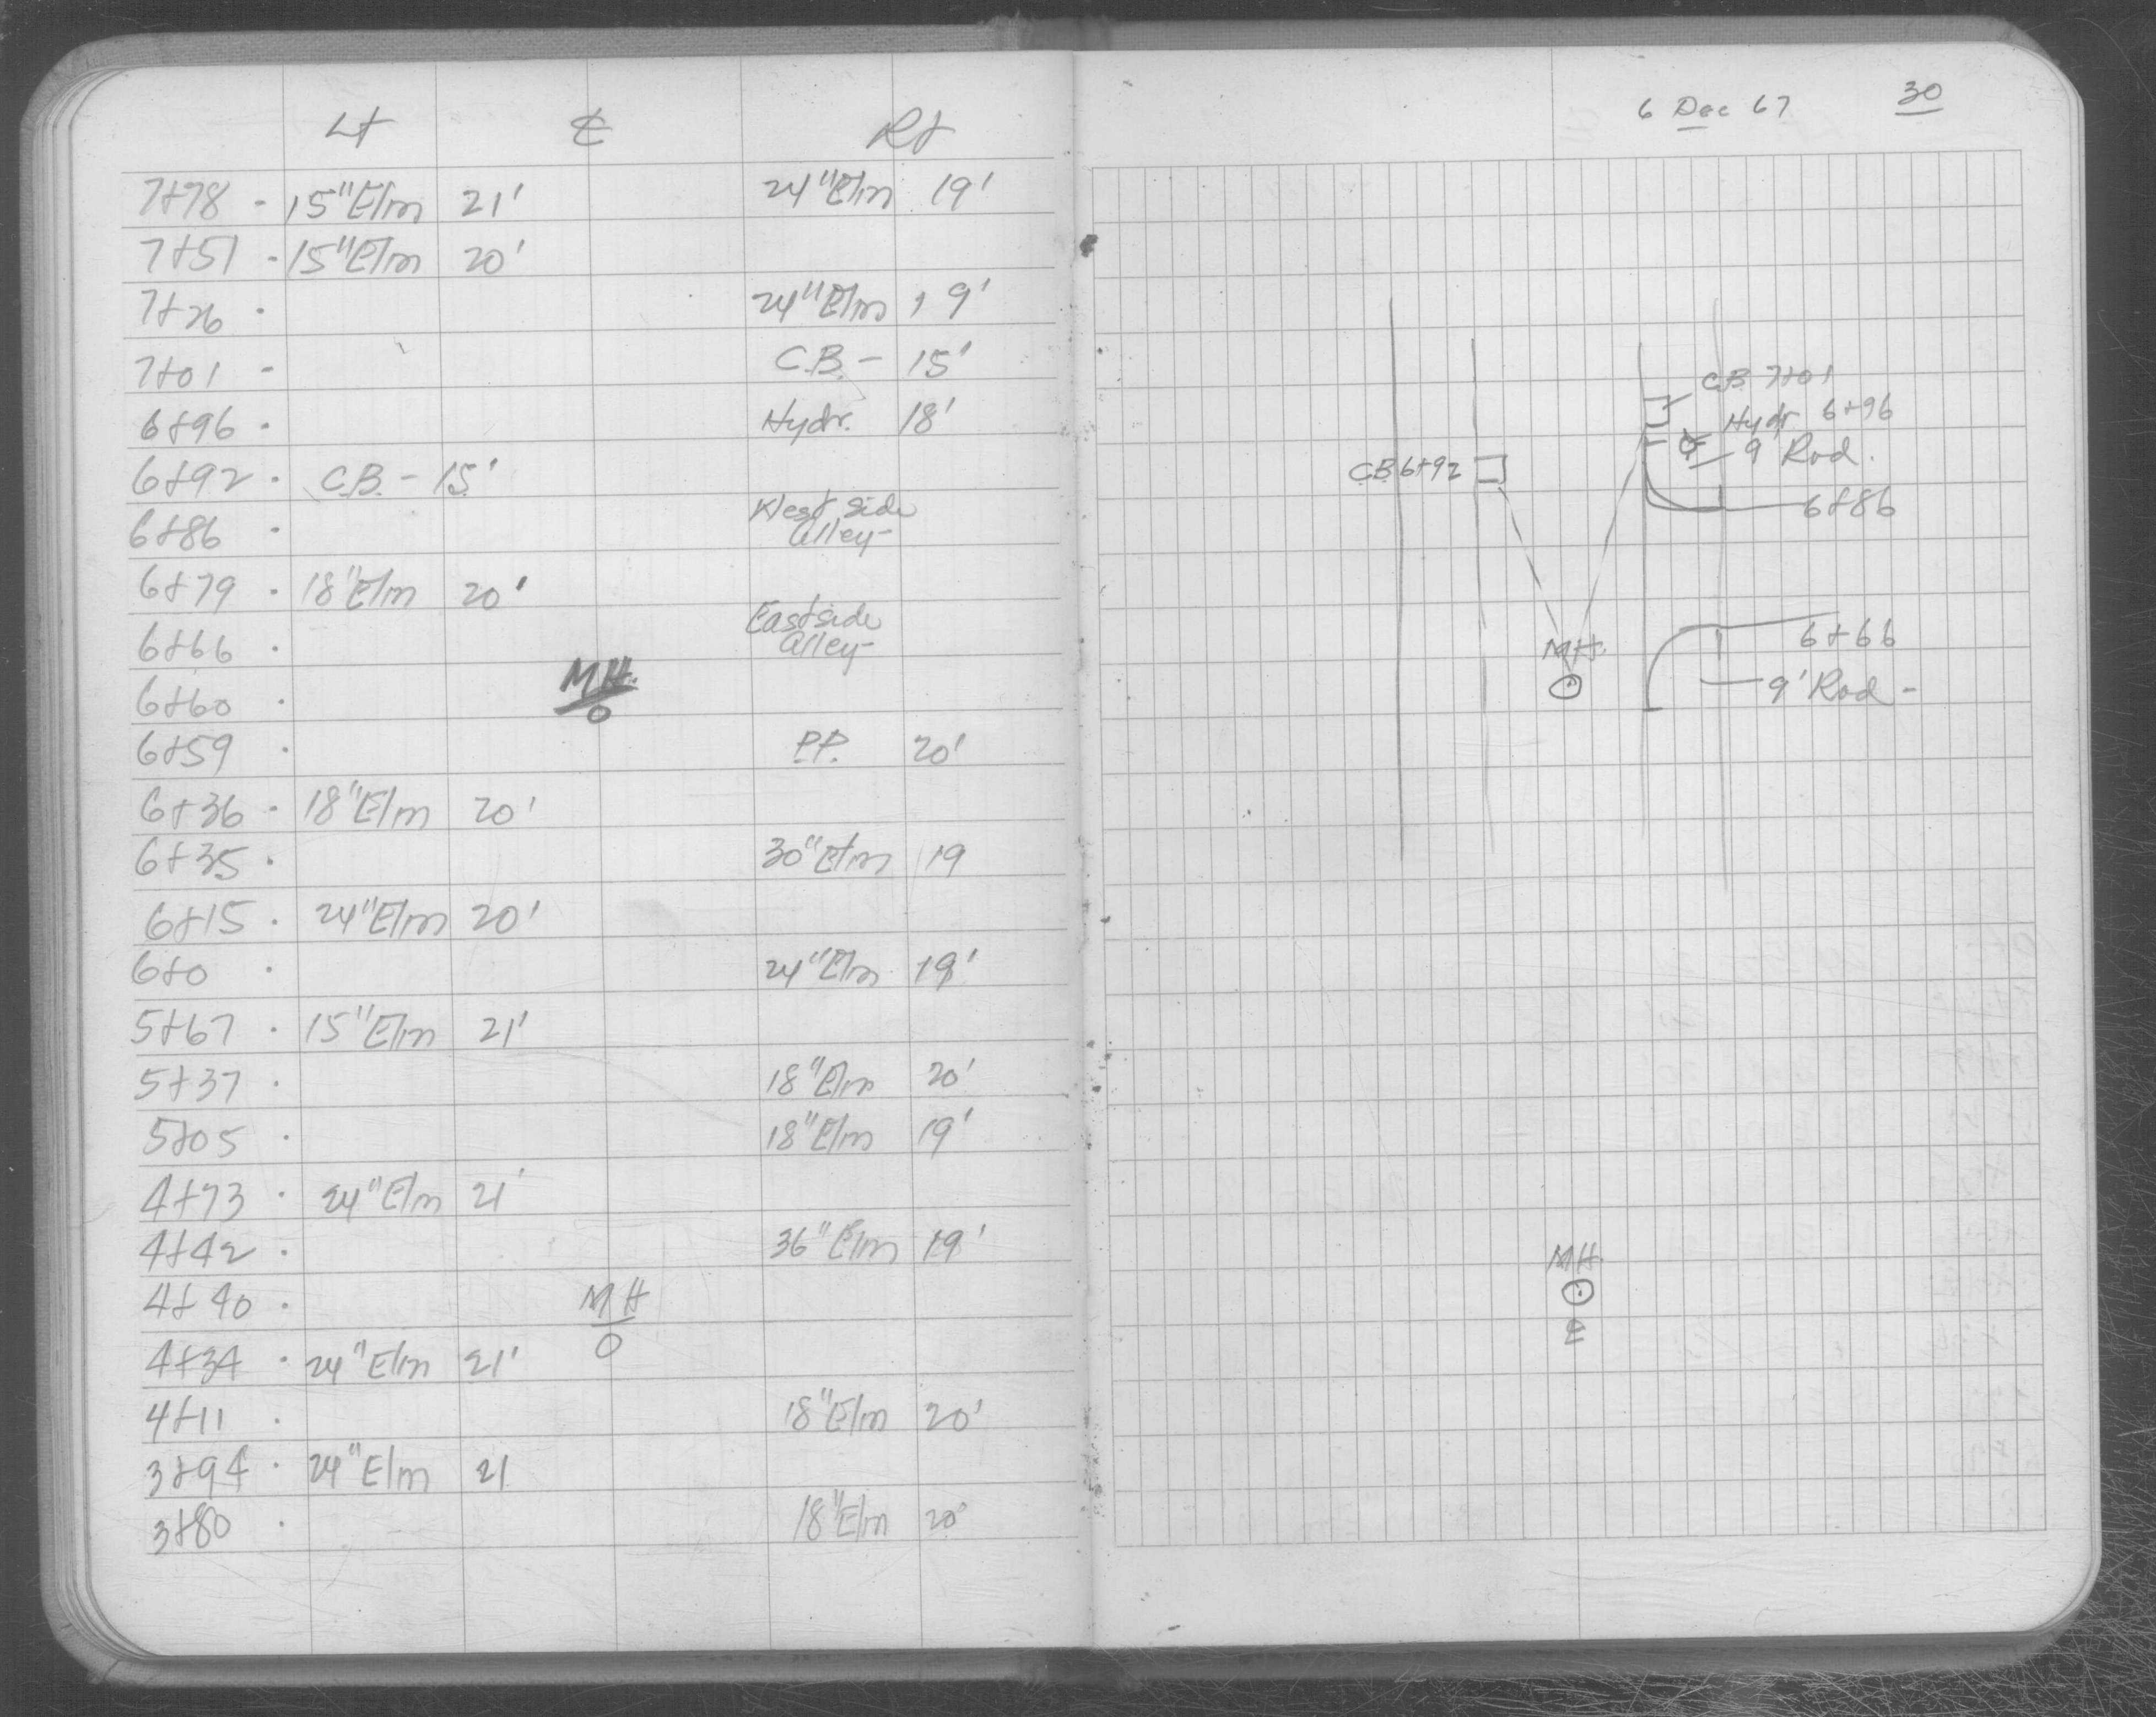 Lt ℄ Rt
7+78 - 15"Elm 21' 24"Elm 19'
7+51 - 15"Elm 20'
7+26 - 24"Elm 19'
7+01 - C.B. - 15'
6+96 - Hydr. 18'
6+92 - C.B. - 15'
6+86 - West side
Alley-
6+79 - 18"Elm 20'
6+66 - East side
Alley-
6+60 - M.H.
0
6+59 - P.P. 20'
6+36 - 18"Elm 20'
6+35 - 30"Elm 19
6+15 - 24"Elm 20'
6+0 - 24"Elm 19'
5+67 - 15"Elm 21'
5+37 - 18"Elm 20'
5+05 - 18"Elm 19'
4+73 - 24"Elm 21'
4+42 - 36"Elm 19'
4+40 - MH
0
4+34 - 24"Elm 21'
4+11 - 18"Elm 20'
3+94 - 24"Elm 21
3+80 - 18"Elm 20'
6 Dec 67 30
C.B. 7+01
Hydr. 6+96
9 Rad.
C.B. 6+92
6+86
M.H.
6+66
9' Rad -
M.H.